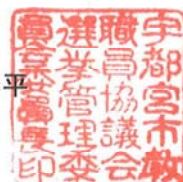 宇都宮市教
職員協議会
選挙管理委
員印
平